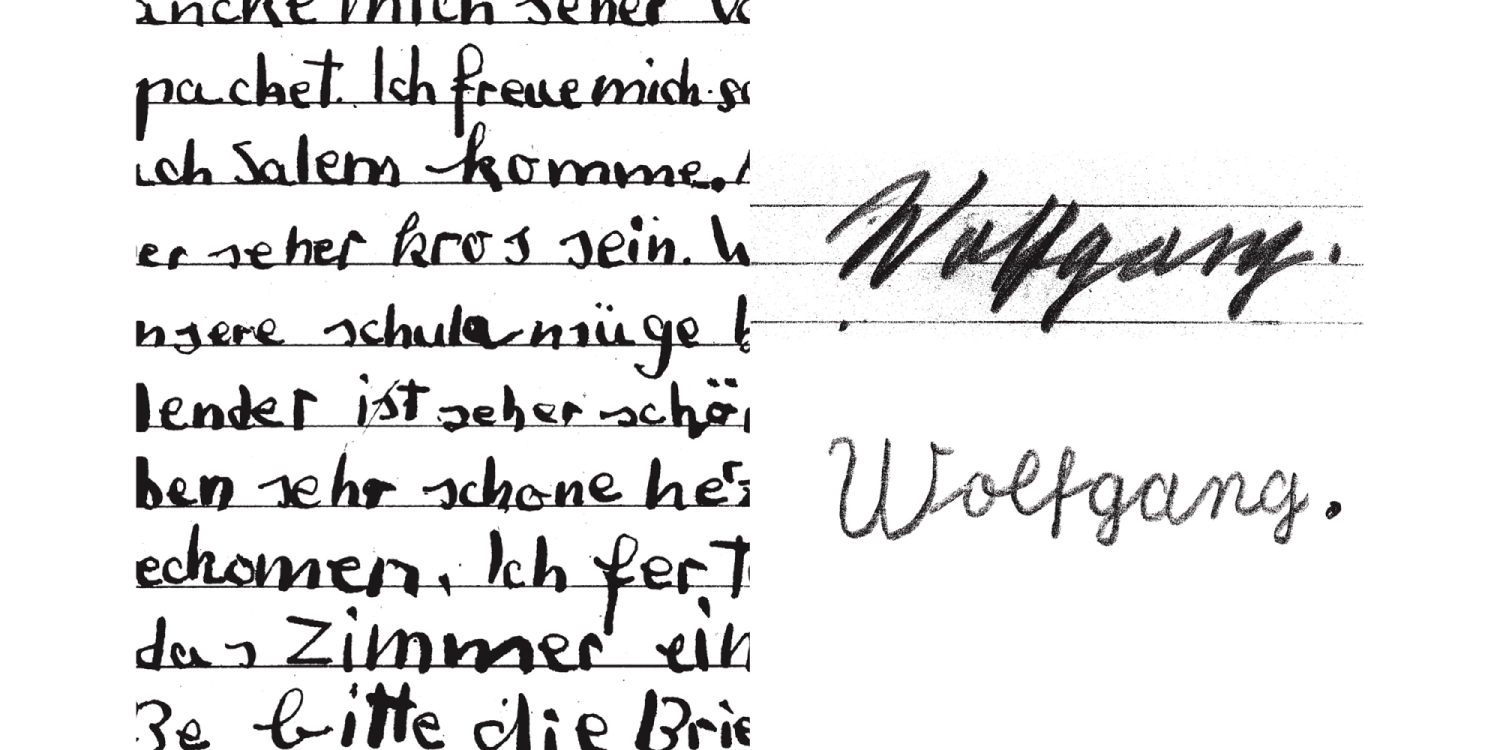 pachet. Ich freue mich
ich Salem komme.
er seher kros sein.
nsere schule müge
lender ist seher schö
ben sehr schone
eckomen, Ich fer
das Zimmer ein
ße bitte die Brie
Wolfgang.
Wolfgang.